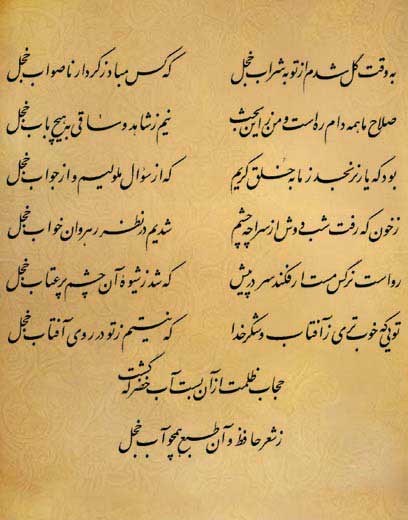 به وقت گل شدم از توبهٔ شراب خجل که کس مباد ز کردار ناصواب خجل
صلاح ما همه دام ره است و من زین بحث نیم ز شاهد و ساقی به هیچ باب خجل
بود که یار نرنجد ز ما به خلق کریم که از سؤال ملولیم و از جواب خجل
ز خون که رفت شب دوش از سراچهٔ چشم شدیم در نظر رهروان خواب خجل
رواست نرگس مست ار فکند سر در پیش که شد ز شیوهٔ آن چشم پرعتاب خجل
تویی که خوب‌تری ز آفتاب و شکر خدا که نیستم ز تو در روی آفتاب خجل
حجاب ظلمت از آن بست آب خضر که گشت
ز شعر حافظ و آن طبع همچو آب خجل